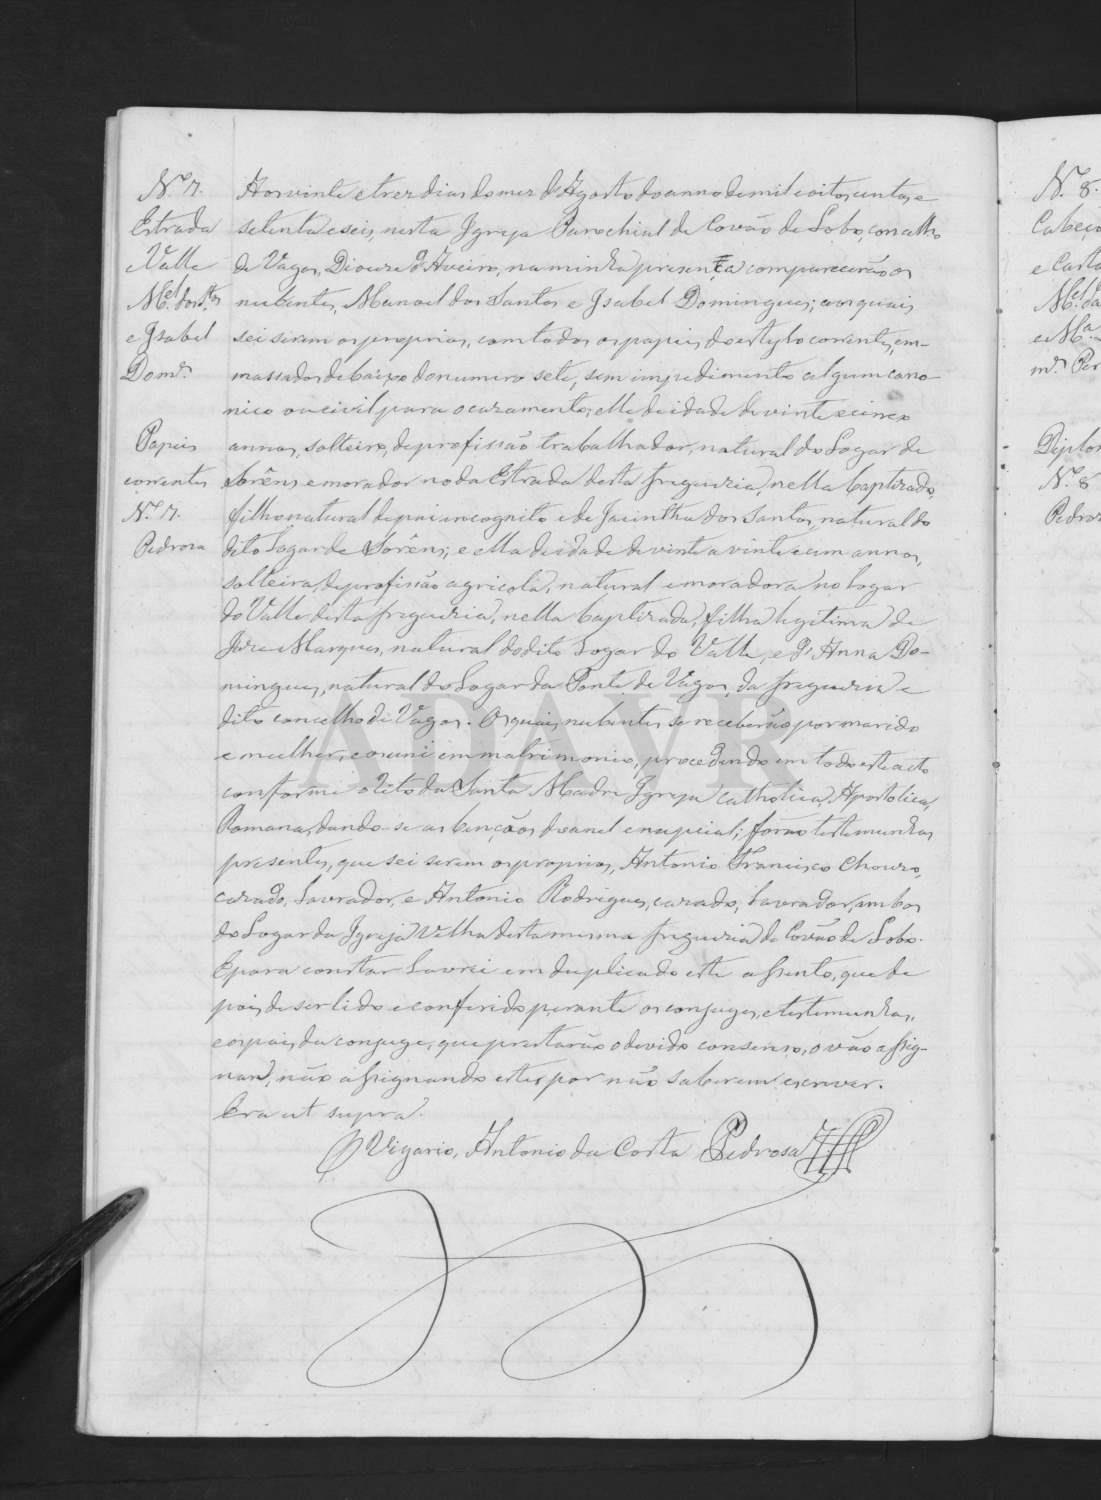 N.º 7.
Estrada
e Valle
M.el dos S.tos
e Isabel
Dom.es
Papeis
correntes
N.º 7.
Pedrosa
Aos vinte e trez dias do mez d'Agosto do anno de mil e oitocentos e
setenta e seis, nesta Igreja Parochial de Covão de Lobo, concelho
de Vagos, Diocese d'Aveiro, na minha presença comparecerão os
nubentes, Manoel dos Santos e Isabel Domingues; aos quais
sei serem os proprios, com todos os papeis do estylo correntes, em-
massados debaixo do numero sete, sem impedimento algum cano-
nico ou civil para o cazamento; elle de idade de vinte e cinco
annos, solteiro, de profissão trabalhador, natural do Logar de
Sorêns e morador no da Estrada desta freguezia, nella baptizado,
filho natural de pai incognito e de Jacintha dos Santos, natural do
dito Logar de Sorêns; e ella de idade de vinte a vinte e um annos,
solteira, de profissão agricola, natural e moradora no logar
do Valle desta freguezia, nella baptizada, filha legitima de
Joze Marques, natural do dito Logar do Valle, e d'Anna Do-
mingues, natural do Logar da Ponte de Vagos, da freguezia e
dito concelho de Vagos. Os quais nubentes se receberão por marido
e mulher, e os uni em matrimonio, procedendo em todo este acto
conforme o rito da Santa Madre Igreja Catholica, Apostolica,
Romana, dando-se as bençãos do anel e nupcial; forão testemunhas
presentes, que sei serem os proprios, Antonio Francisco Chouro,
cazado, Lavrador, e Antonio Rodrigues, cazado, Lavrador, ambos
do Logar da Igreja Velha desta mesma freguezia de Covão de Lobo.
E para constar Lavrei em duplicado este assento, que de
pois de ser lido e conferido perante os conjuges, e testemunhas,
e os pais da conjuge, que prestarão o devido consenso, o vão assig-
nar, não assignando estes por não saberem escrever.
Era ut supra.
O Vigario, Antonio da Costa Pedrosa
ADAVR
N.º 8.
Cabeço
M.el da
N.º 8